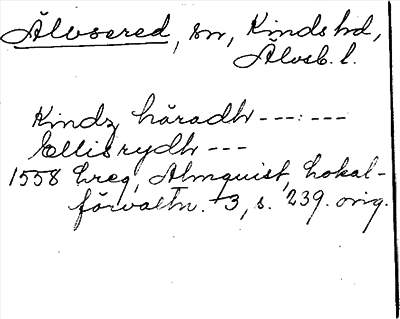 Älvsered, sn, Kinds hd,
Älvsb. l.
Kindz häradh ---:---
Ellisrydh ---
1558 Ereg, Almquist, Lokal-
förvaltn. 3, s. 239. orig.